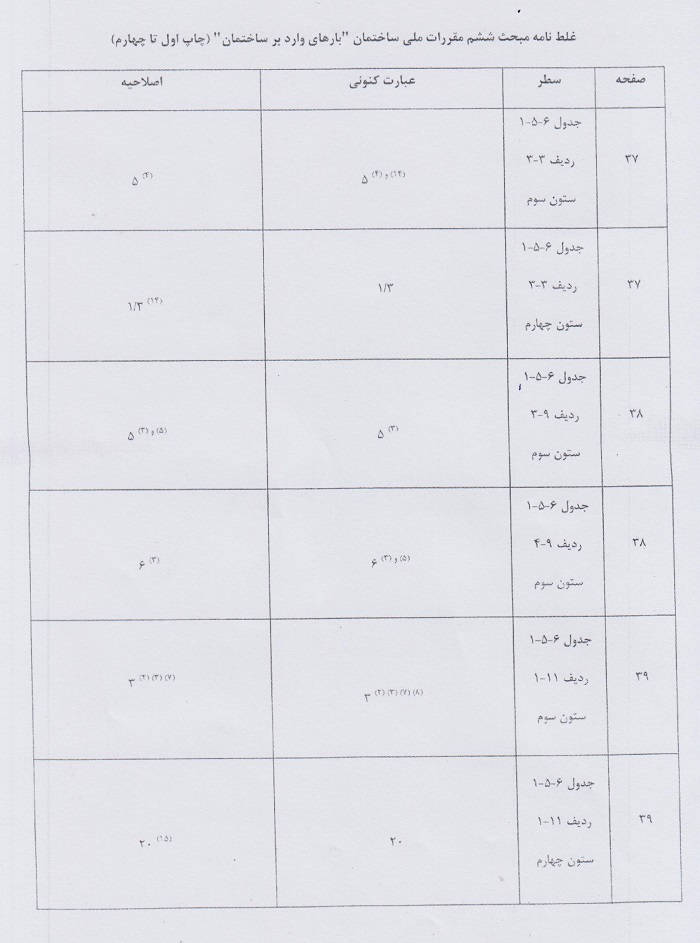 غلط نامه مبحث ششم مقررات ملی ساختمان "بارهای وارد بر ساختمان" (چاپ اول تا چهارم)
صفحه سطر عبارت کنونی اصلاحیه
۳۷
جدول ۶-۵-۱
ردیف ۳-۳
ستون سوم
۵ (۴) و (۱۴)
۵ (۴)
۳۷
جدول ۶-۵-۱
ردیف ۳-۳
ستون چهارم
۱/۳
۱/۳ (۱۴)
۳۸
جدول ۶-۵-۱
ردیف ۹-۳
ستون سوم
۵ (۳)
۵ (۳) و (۵)
۳۸
جدول ۶-۵-۱
ردیف ۹-۴
ستون سوم
۶ (۳) و (۵)
۶ (۳)
۳۹
جدول ۶-۵-۱
ردیف ۱۱-۱
ستون سوم
۳ (۲) (۳) (۷) (۸)
۳ (۲) (۳) (۷)
۳۹
جدول ۶-۵-۱
ردیف ۱۱-۱
ستون چهارم
۲۰
۲۰ (۱۵)